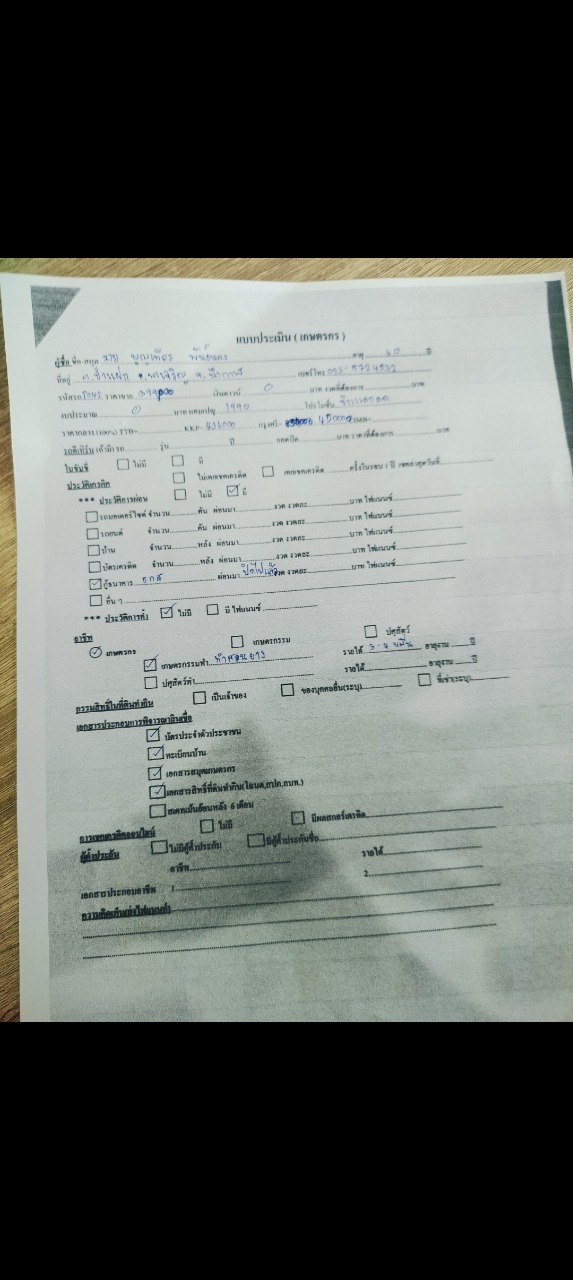 แบบประเมิน ( เกษตรกร )
ผู้ซื้อ ชื่อ-สกุล นาย บุญเทียร อายุ 60 ปี
ที่อยู่ เบอร์โทร
รหัสรถ ราคาขาย เงินดาวน์ 0 บาท งวดที่ต้องการ บาท
งบประมาณ 0 บาท 1990 โปรโมชั่น
KKP- กรุงศรี- 450000
รุ่น ปี ยอดปิด บาท งวดที่ต้องการ บาท
ใบขับขี่ ไม่มี มี
ประวัติเครดิต ไม่เคยเชคเครดิต เคยเชคเครดิต ครั้งในรอบ 1 ปี เชคล่าสุดวันที่
*** ประวัติการผ่อน ไม่มี มี
รถมอเตอร์ไซค์ จำนวน คัน ผ่อนมา งวด งวดละ บาท ไฟแนนซ์
รถยนต์ จำนวน คัน ผ่อนมา งวด งวดละ บาท ไฟแนนซ์
บ้าน จำนวน หลัง ผ่อนมา งวด งวดละ บาท ไฟแนนซ์
บัตรเครดิต จำนวน หลัง ผ่อนมา งวด งวดละ บาท ไฟแนนซ์
กู้ธนาคาร ธกส ผ่อนมา ปิดไปแล้ว งวด งวดละ บาท ไฟแนนซ์
อื่น ๆ
*** ประวัติการค้ำ ไม่มี มี ไฟแนนซ์
อาชีพ
เกษตรกร เกษตรกรรม ปศุสัตว์
เกษตรกรรมทำ ทำสวนยาง รายได้ อายุงาน ปี
ปศุสัตว์ทำ รายได้ อายุงาน ปี
กรรมสิทธิ์ในที่ดินทำกิน เป็นเจ้าของ ของบุคคลอื่น(ระบุ) ที่เช่า(ระบุ)
เอกสารประกอบการพิจารณาสินเชื่อ
บัตรประจำตัวประชาชน
ทะเบียนบ้าน
เอกสารสมุดเกษตรกร
เอกสารสิทธิ์ที่ดินทำกิน(โฉนด,สปก,ภบท.)
สเตทเม้นย้อนหลัง 6 เดือน
การเชคเครดิตออนไลน์ ไม่มี มีผลสกอร์เครดิต
ผู้ค้ำประกัน ไม่มีผู้ค้ำประกัน มีผู้ค้ำประกันชื่อ
อาชีพ รายได้
เอกสารประกอบอาชีพ 1. 2.